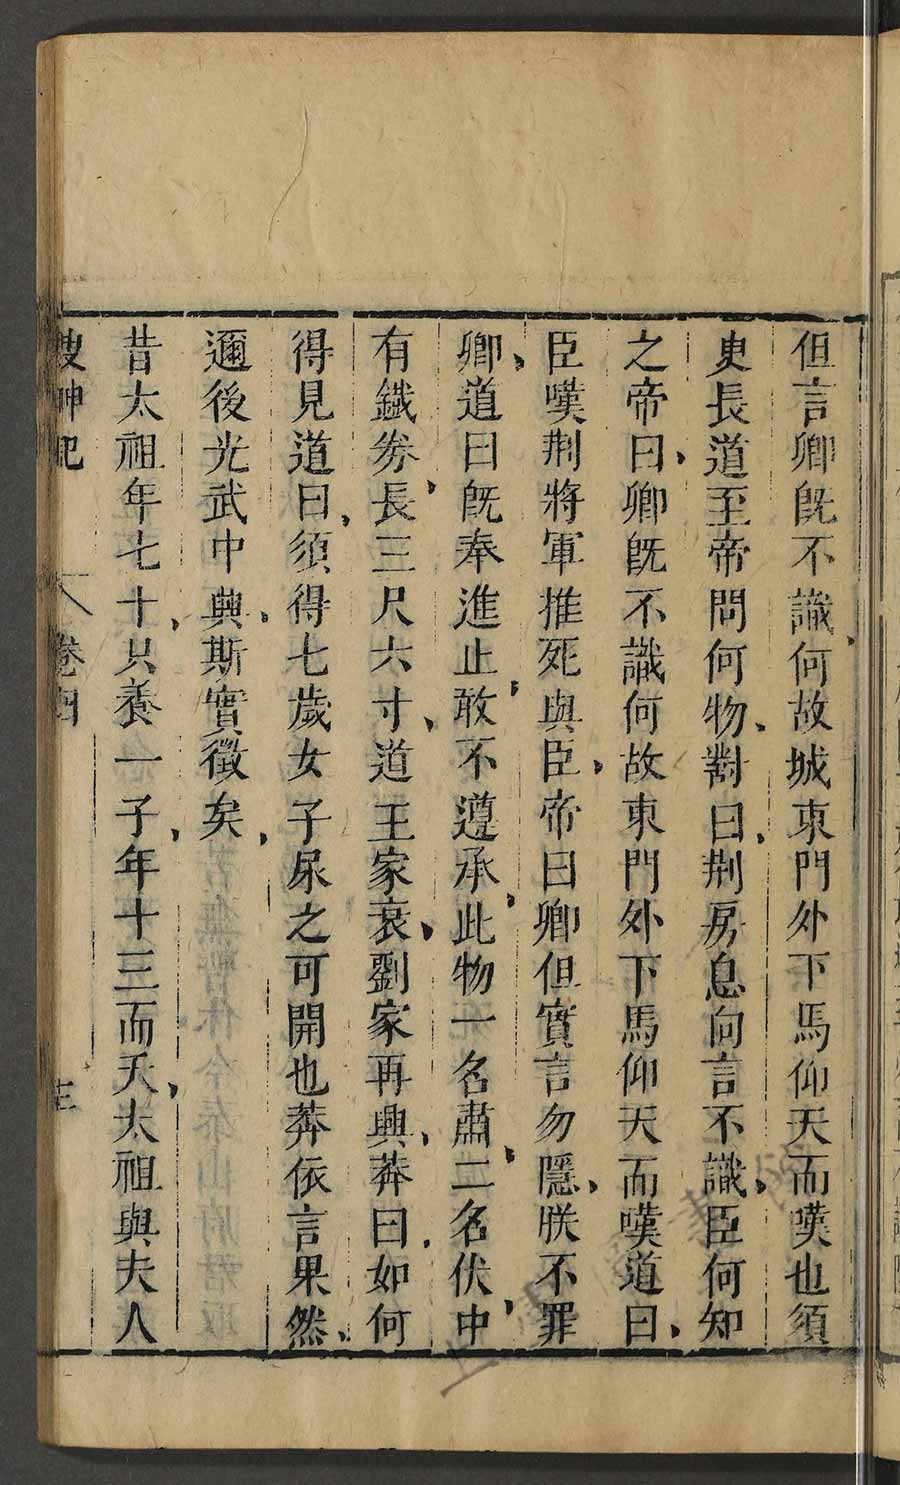 但言卿旣不識何故城東門外下馬仰天而嘆也須
臾長道至帝問何物對曰荆房息向言不識臣何知
之帝曰卿旣不識何故東門外下馬仰天而嘆道曰
臣嘆荆將軍推死與臣帝曰卿但實言勿隱朕不罪
卿道曰旣奉進止敢不遵承此物一名肅二名伏中
有鐵券長三尺六寸道王家衰劉家再興莽曰如何
得見道曰須得七歲女子尿之可開也莽依言果然
邇後光武中興斯實徵矣
昔太祖年七十只養一子年十三而夭太祖與夫人
搜神記 卷四 三